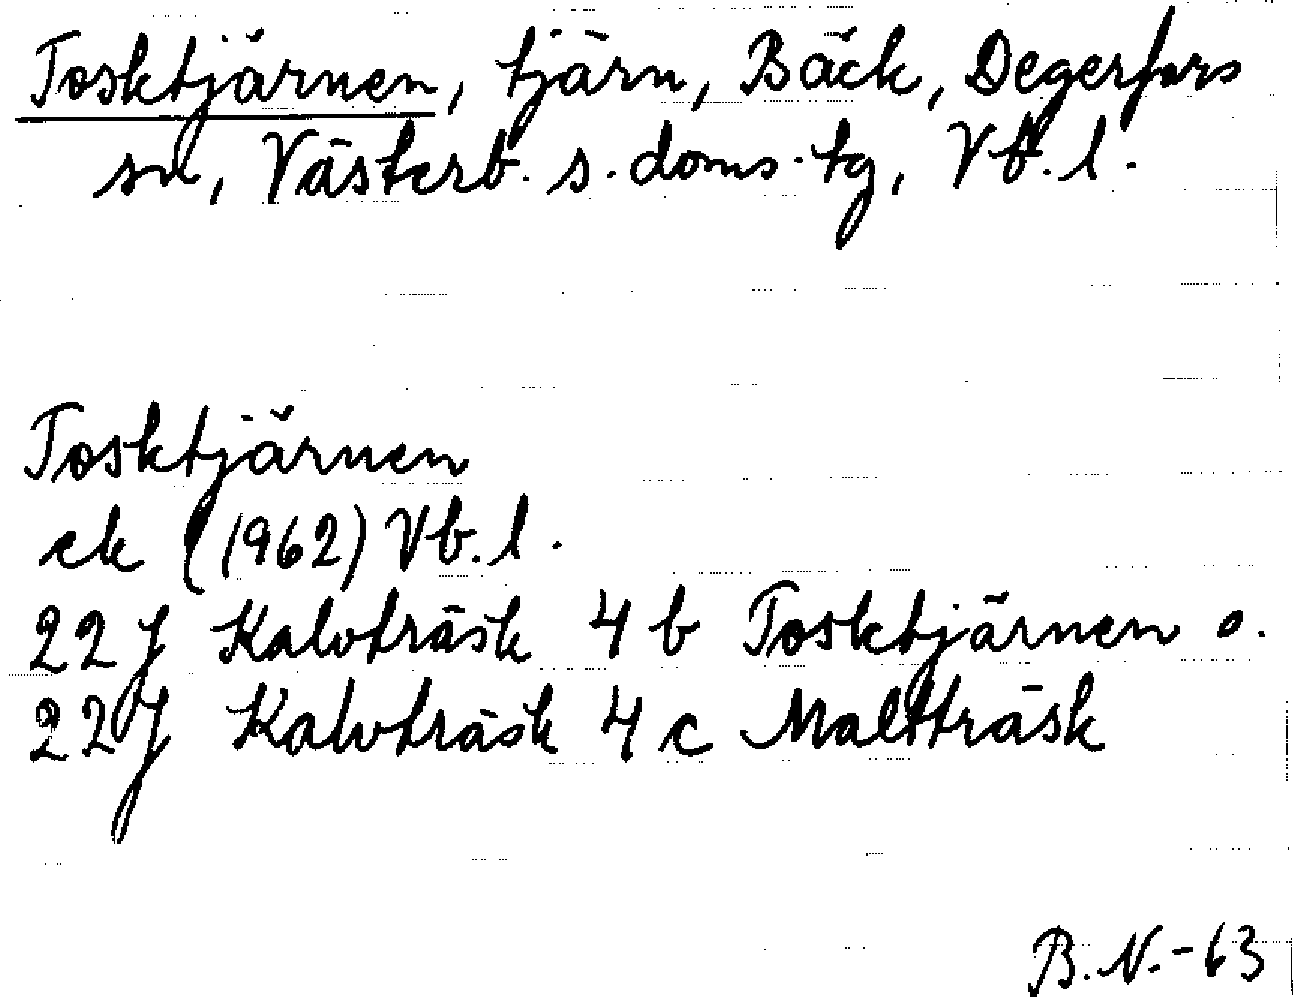 Tosktjärnen, tjärn, Bäck, Degerfors
sn, Västerb. s. doms. tg, Vb. l.
Tosktjärnen
ek (1962) Vb. l.
22 J Kalvträsk 4 b Tosktjärnen o.
22 J Kalvträsk 4 c Maltträsk
B. N. - 63